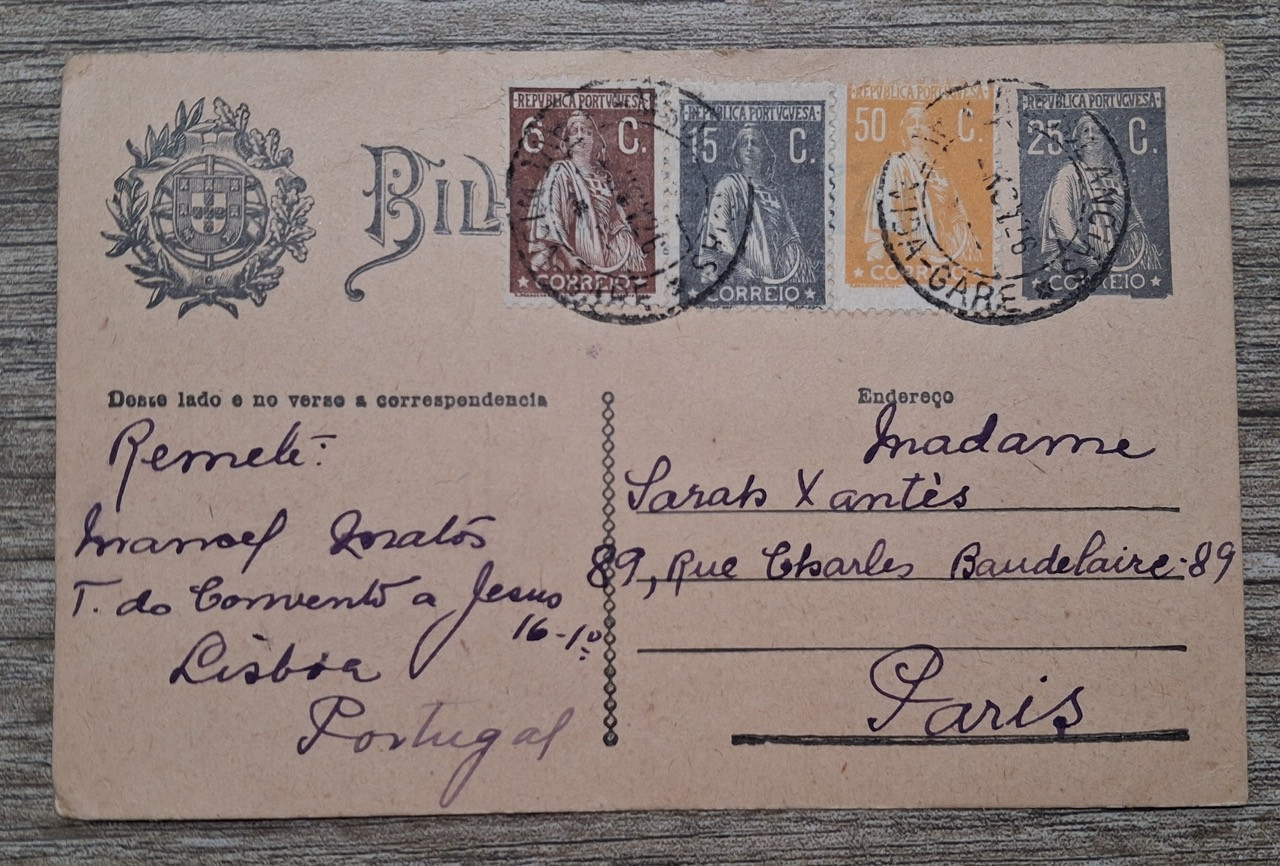 BIL
REPVBLICA PORTVGVESA
6 C.
CORREIO
REPVBLICA PORTVGVESA
15 C.
CORREIO
REPVBLICA PORTVGVESA
50 C.
CORREIO
REPVBLICA PORTVGVESA
25 C.
CORREIO
GARE
Deste lado e no verso a correspondencia
Remete:
Manoel Matos
T. do Convento a Jesus
16-1º
Lisboa
Portugal
Endereço
Madame
Sarah Xantès
89, Rue Charles Baudelaire-89
Paris